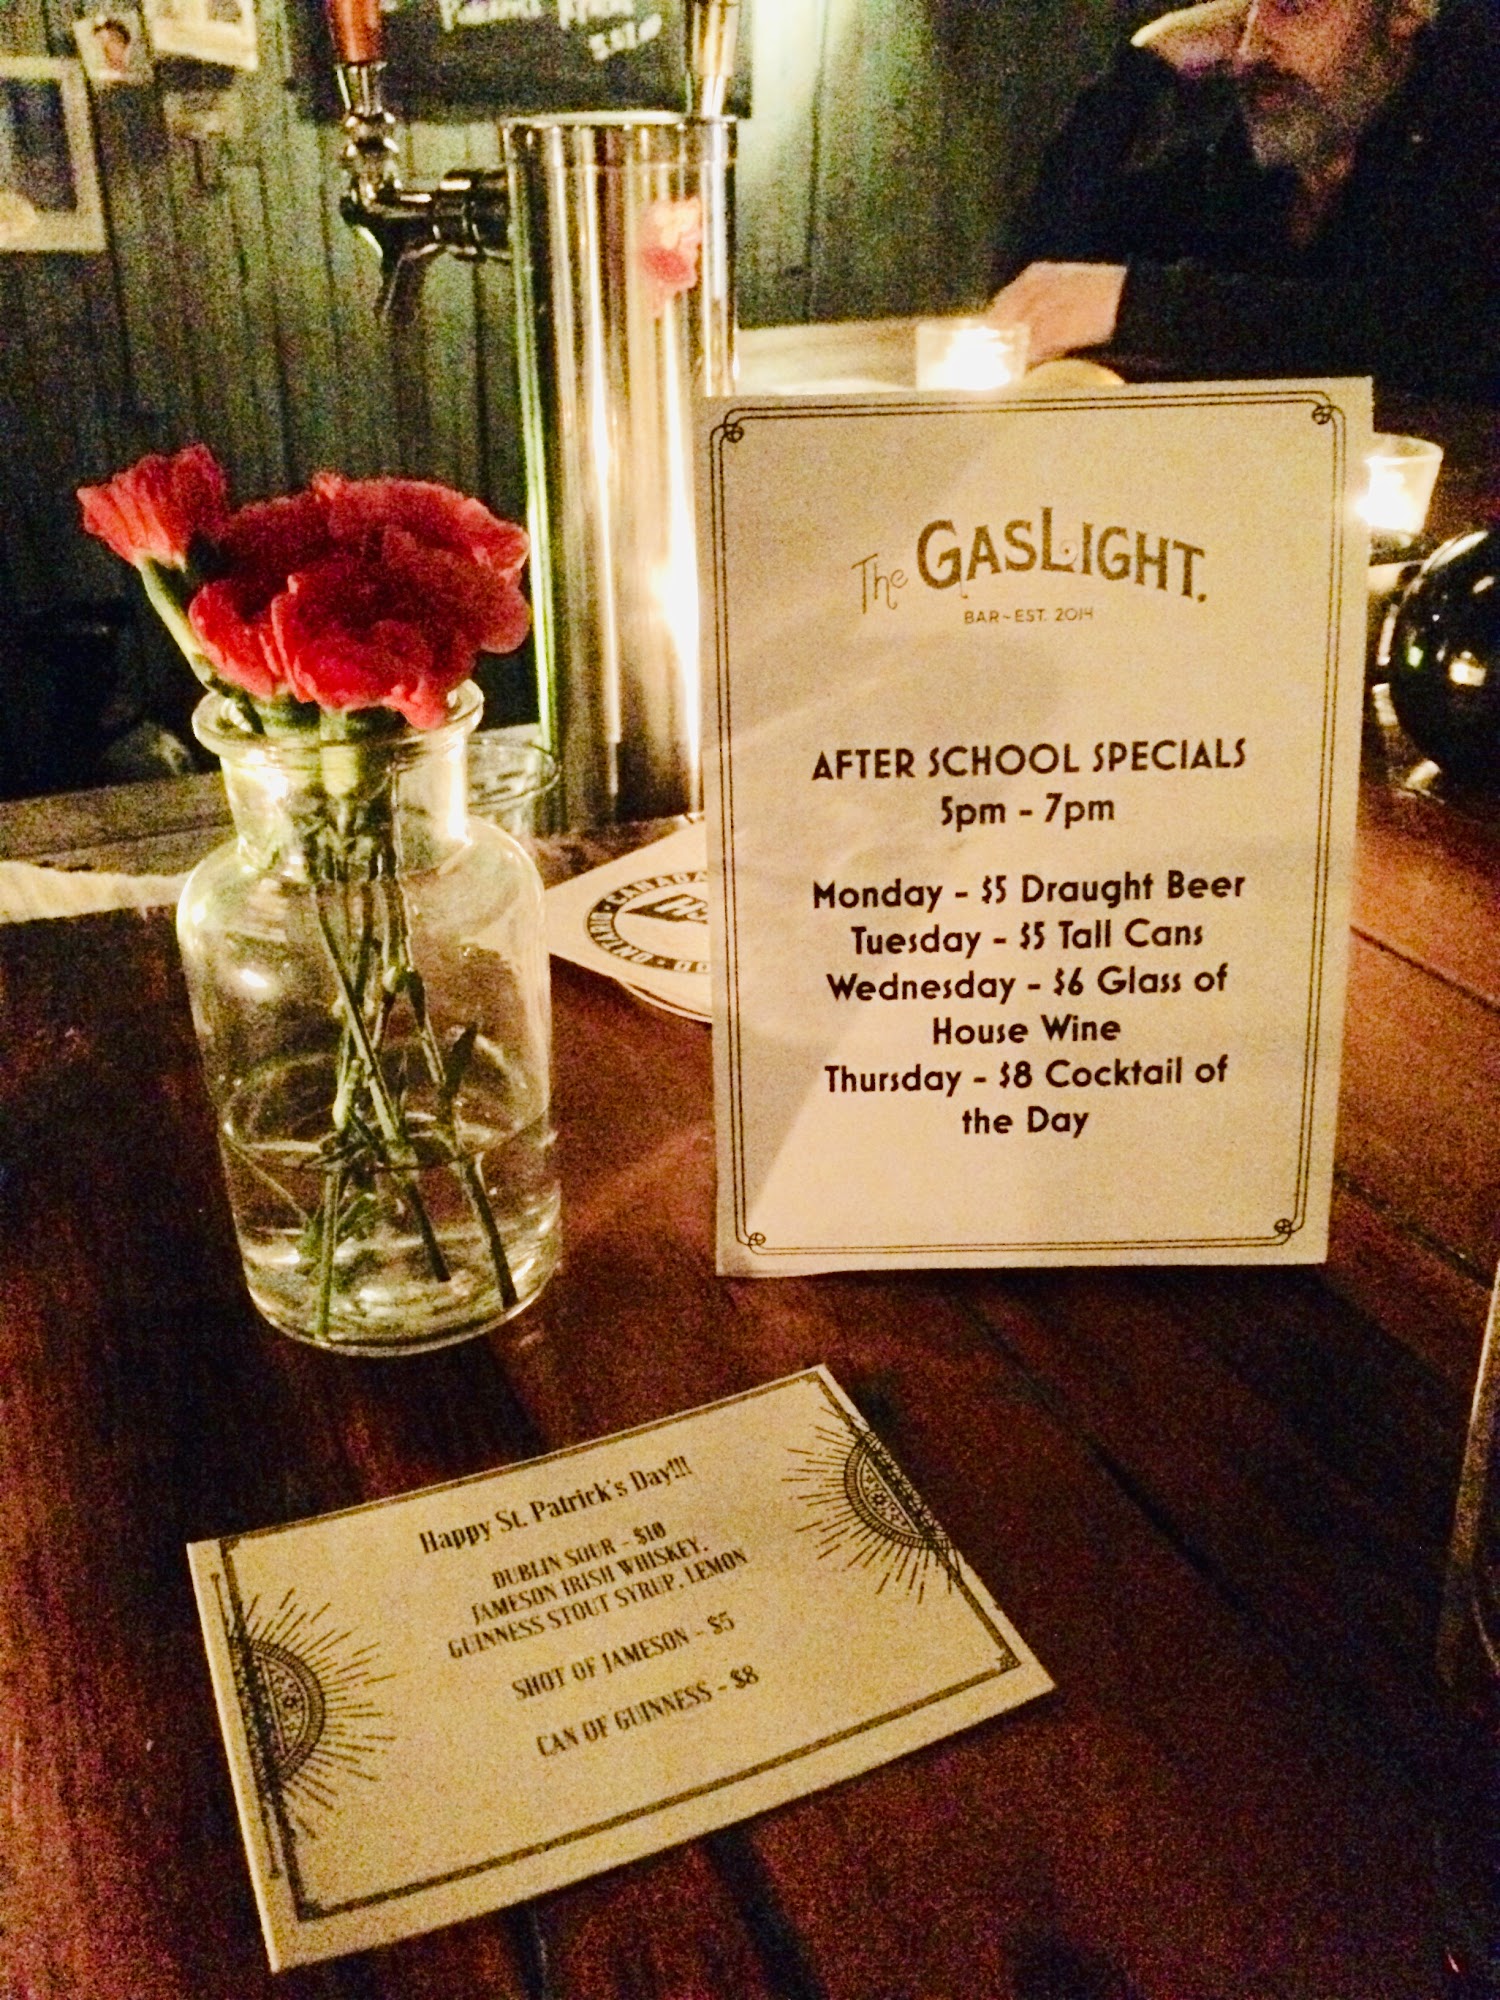 The GASLIGHT.
BAR~EST. 2014
AFTER SCHOOL SPECIALS
5pm - 7pm
Monday - $5 Draught Beer
Tuesday - $5 Tall Cans
Wednesday - $6 Glass of
House Wine
Thursday - $8 Cocktail of
the Day
Happy St. Patrick's Day!!!
DUBLIN SOUR - $10
JAMESON IRISH WHISKEY,
GUINNESS STOUT SYRUP, LEMON
SHOT OF JAMESON - $5
CAN OF GUINNESS - $8